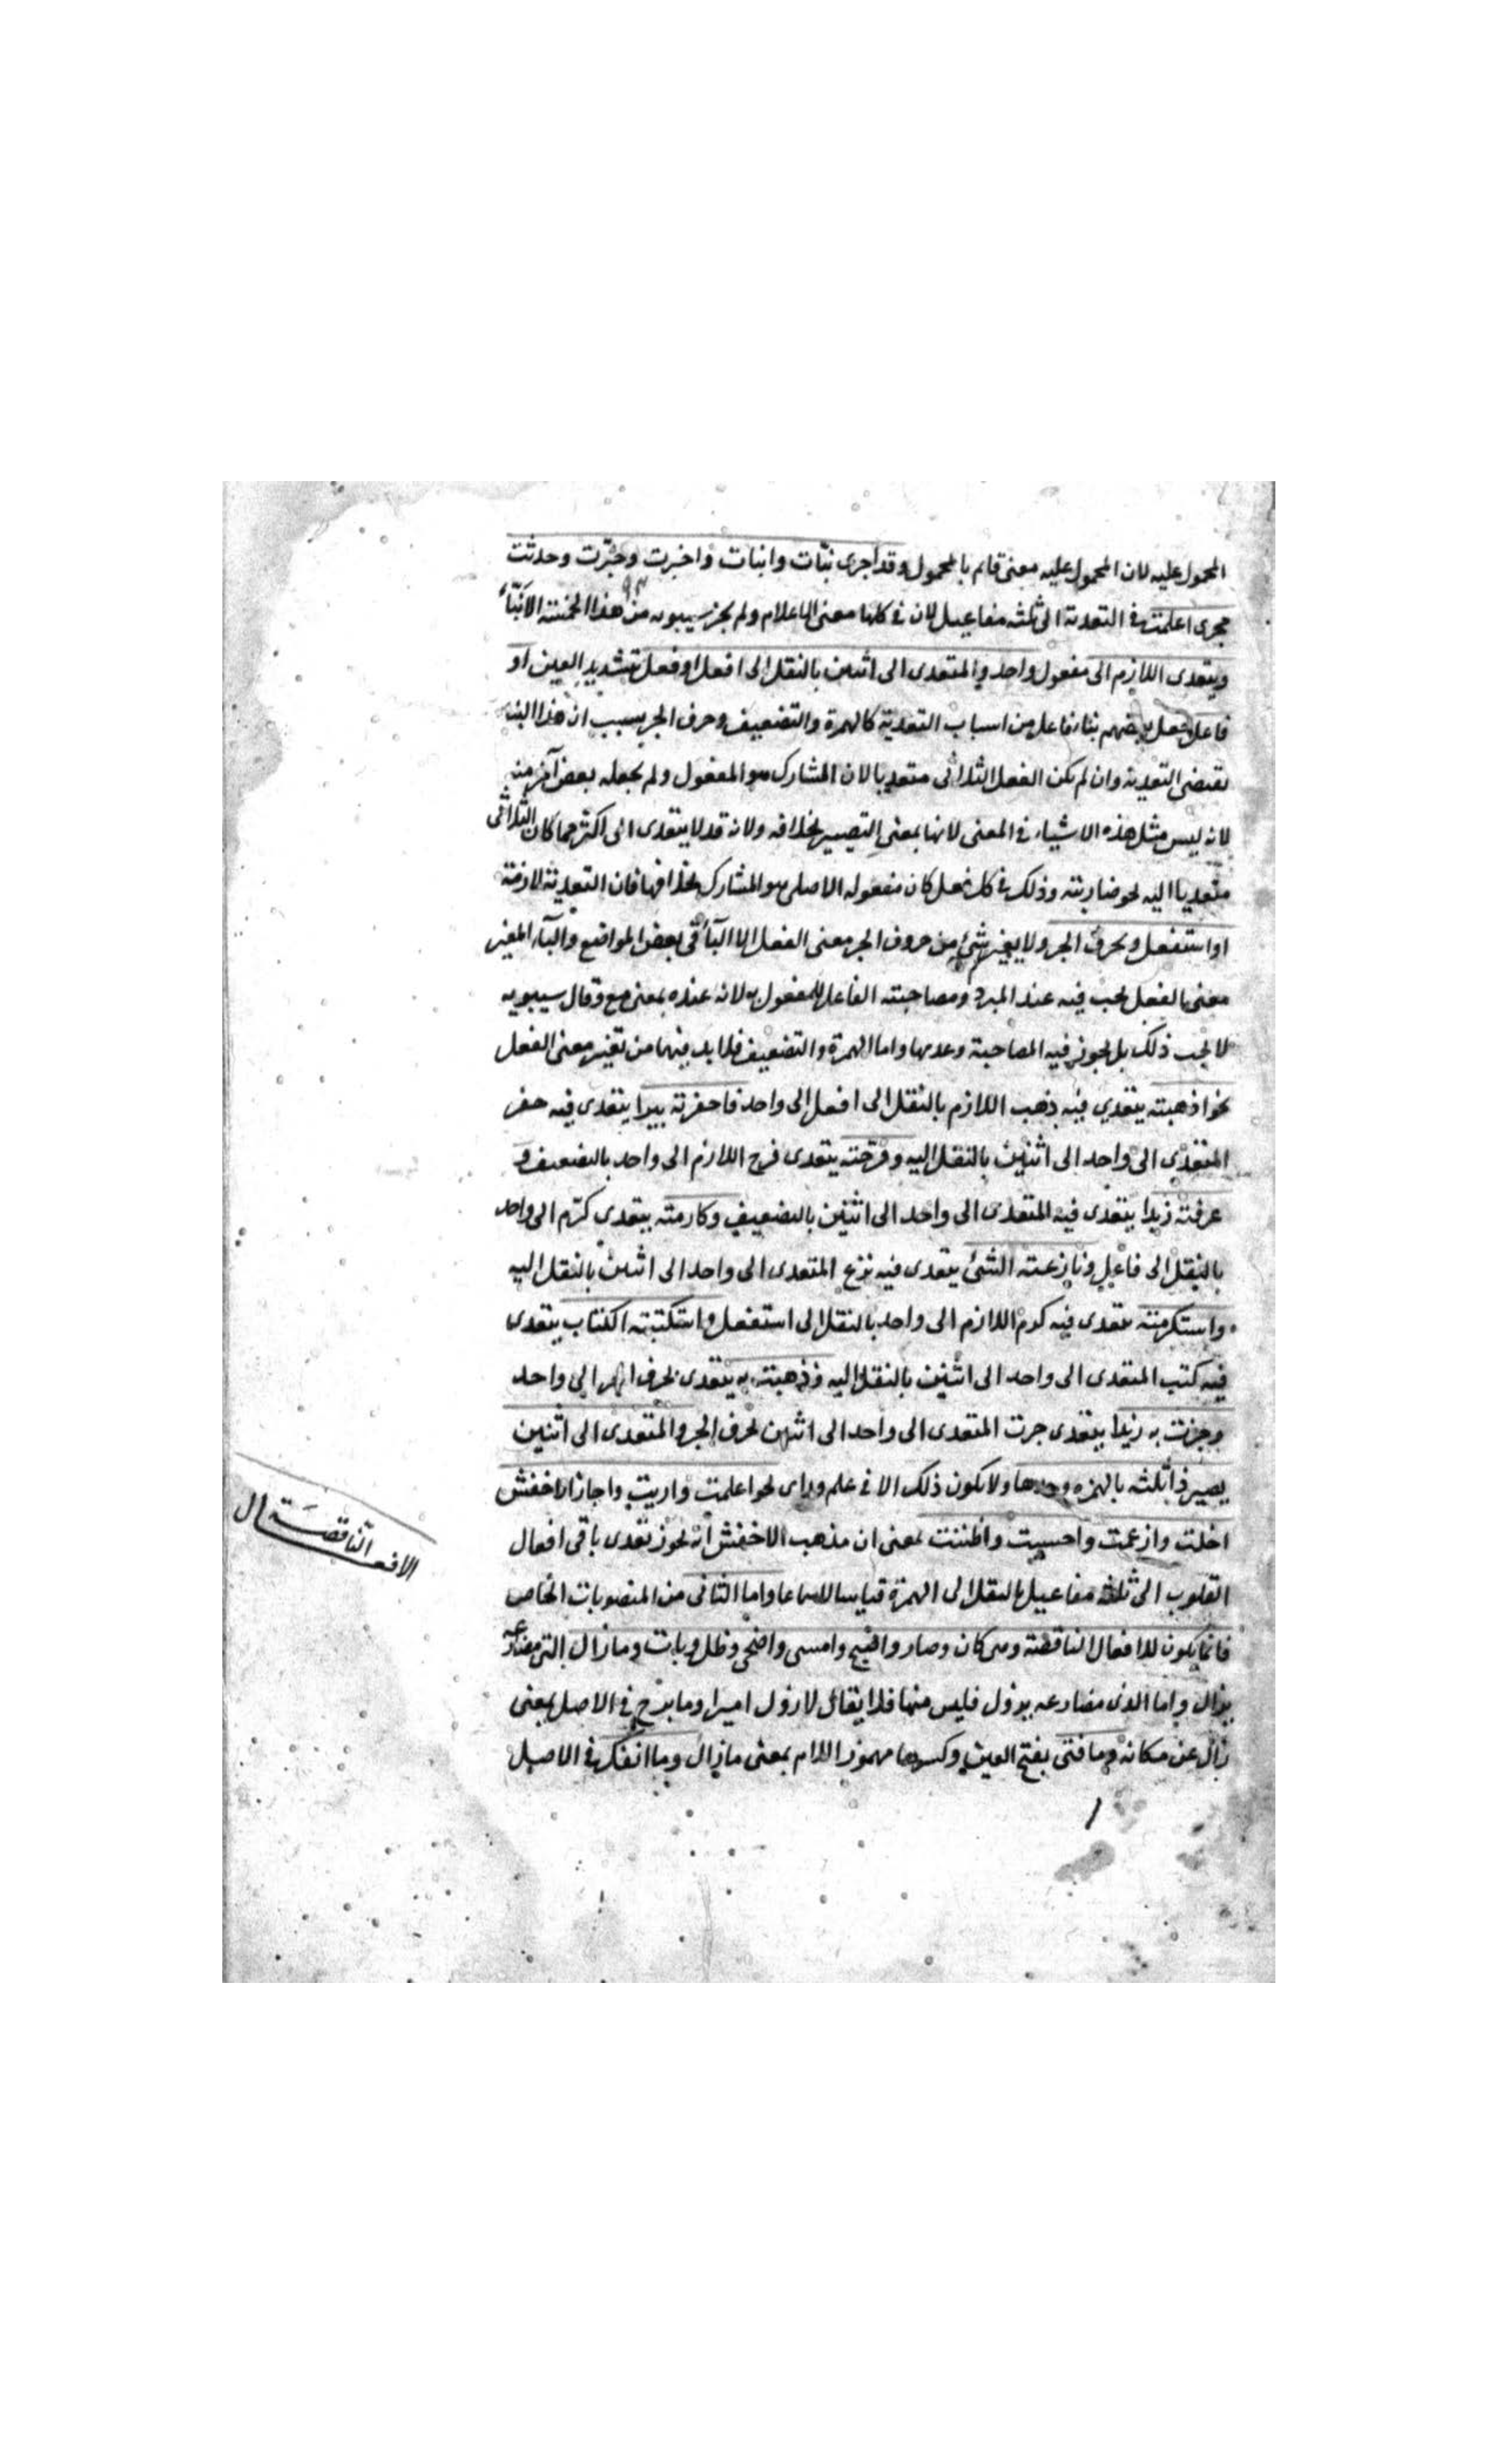 المحمول عليه لان المحمول عليه معنى قايم بالمحمول وقد اجرى نبّات وانبات واخبرت وخبّرت وحدثت
مجرى اعلمت فى التعدية الى ثلثه مفاعيل لان فى كلها معنى الاعلام ولم يجز سيبويه من هذا الخمسة الا نبّأ
ويتعدى اللازم الى مفعول واحد والمتعدى الى اثنين بالنقل الى افعل او فعل بتشديد العين او
فاعل جعل بعضهم بناء فاعل من اسباب التعدية كالهمزة والتضعيف وحرف الجر بسبب ان هذا البناء
يقتضى التعدية وان لم يكن الفعل الثلاثى متعديا لان المشارك هو المفعول ولم يجعله بعض آخر منه
لانه ليس مثل هذه الاشياء فى المعنى لانها بمعنى التصيير بخلافه ولانه قد لا يتعدى الى اكثر مما كان الثلاثى
متعديا اليه نحو ضاربته وذلك فى كل فعل كان مفعوله الاصلى هو المشارك بخلافها فان التعدية لازمة
او استفعل وبحرف الجر ولا يغير شئ من حروف الجر معنى الفعل الا البآء فى بعض المواضع والبآء المغير
معنى الفعل يجب فيه عند المبرد ومصاحبته الفاعل للمفعول به لانه عنده بمعنى مع وقال سيبويه
لا يجب ذلك بل يجوز فيه المصاحبة وعدمها واما الهمزة والتضعيف فلابد فيهما من تغير معنى الفعل
نحو اذهبته يتعدي فيه ذهب اللازم بالنقل الى افعل الى واحد فاحفرته بيرا يتعدى فيه حفر
المتعدّى الى واحد الى اثنين بالنقل اليه وفرّحته يتعدى فرح اللازم الى واحد بالتضعيف و
عرفته زيدا يتعدى فيه المتعدى الى واحد الى اثنين بالتضعيف وكارمته يتعدى كرم الى واحد
بالنقل الى فاعل ونازعته الشئ يتعدى فيه نزع المتعدى الى واحد الى اثنين بالنقل اليه
واستكرمته يتعدى فيه كرم اللازم الى واحد بالنقل الى استفعل واستكتبته الكتاب يتعدى
فيه كتب المتعدى الى واحد الى اثنين بالنقل اليه وذهبته به يتعدى بحرف الجر الى واحد
وجزت به زيدا يتعدى جزت المتعدى الى واحد الى اثنين بحرف الجر والمتعدى الى اثنين
يصير ذا ثلثه بالهمزه وحدها ولا يكون ذلك الا فى علم وراى نحو اعلمت واريت واجاز الاخفش
اخلت وازعمت واحسبت واظننت بمعنى ان مذهب الاخفش انه يجوز تعدى باقى افعال
القلوب الى ثلثه مفاعيل بالنقل الى الهمزة قياسا لا سماعا واما الثانى من المنصوبات الخاص
فانما يكون للافعال الناقصة وهى كان وصار واصبح وامسى واضحى وظل وبات وما زال التى مضارعه
يزال واما الذى مضارعه يزول فليس منها فلا يقال لا زول اميرا وما برح فى الاصل بمعنى
زال عن مكانه وما فتئ بفتح العين وكسرها مهموز اللام بمعنى ما زال وما انفك فى الاصل
الافعال النّاقصَة